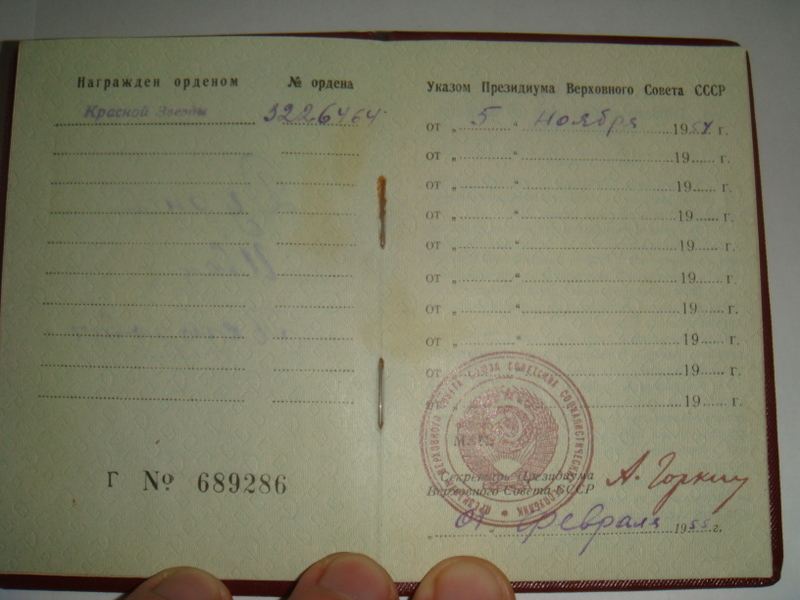 Награжден орденом № ордена
Красной Звезды 3226464
Г № 689286
Указом Президиума Верховного Совета СССР
от „ 5 “ ноября 1954 г.
от „ “ 19 г.
от „ “ 19 г.
от „ “ 19 г.
от „ “ 19 г.
от „ “ 19 г.
от „ “ 19 г.
от „ “ 19 г.
от „ 19 г.
19 г.
Секретарь Президиума
Верховного Совета СССР
А. Горкин
февраля 1955 г.